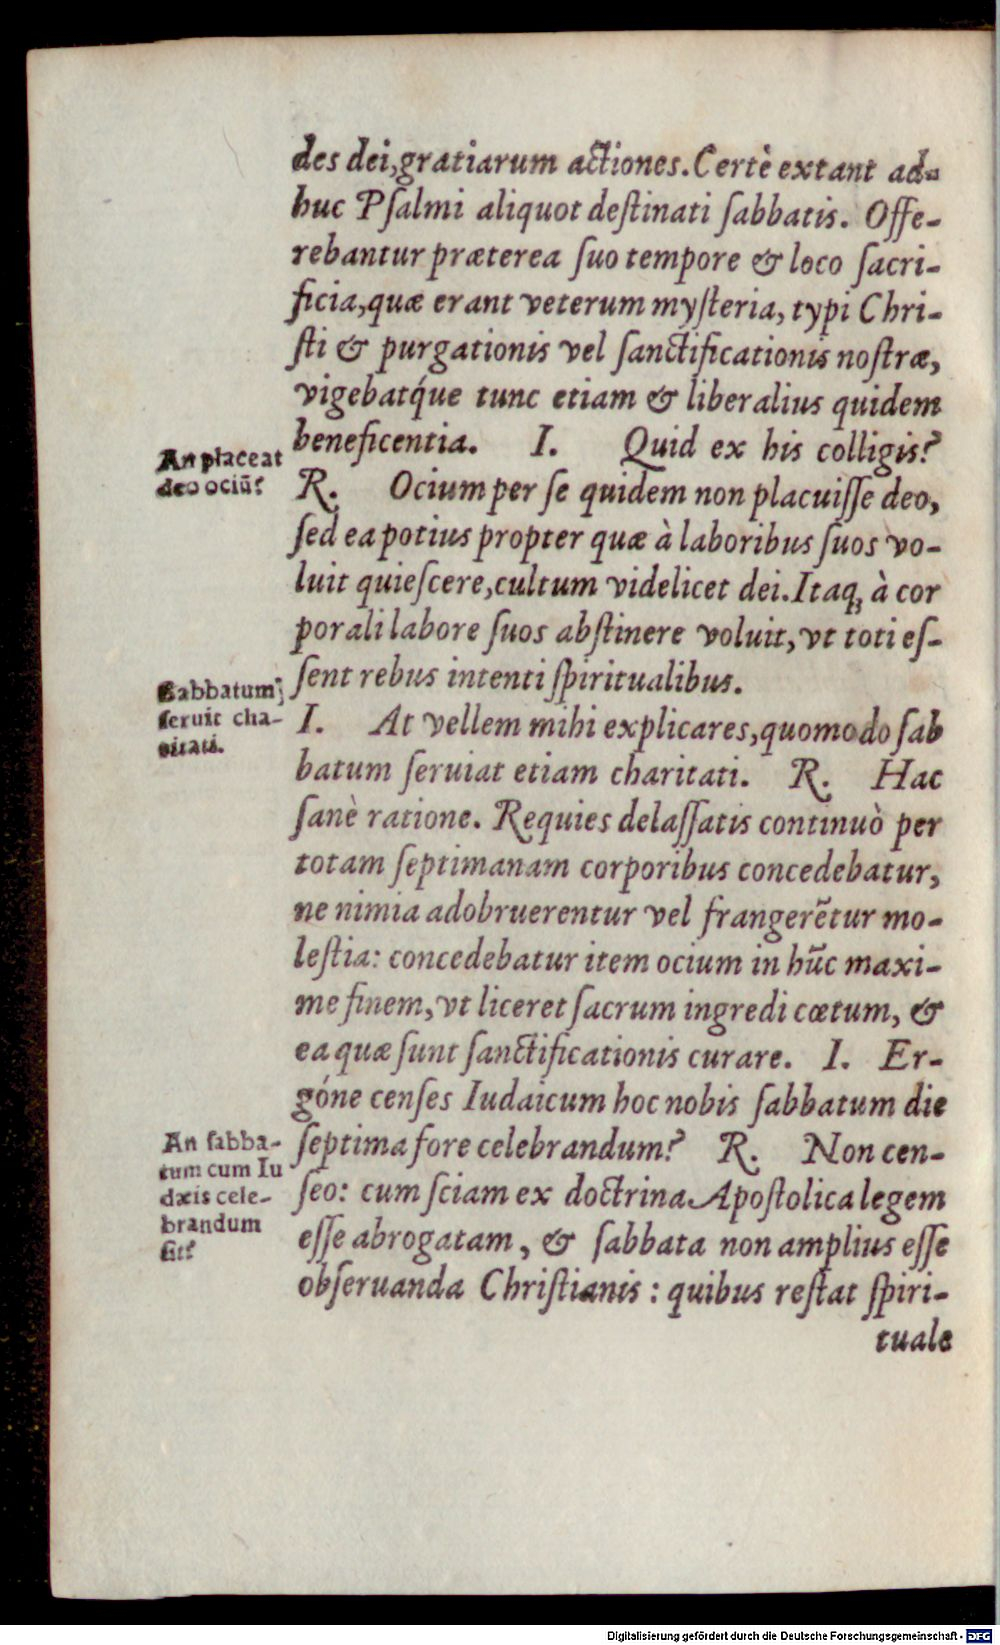 des dei, gratiarum actiones. Certè extant ad-
huc Psalmi aliquot destinati sabbatis. Offe-
rebantur præterea suo tempore & loco sacri-
ficia, quæ erant veterum mysteria, typi Chri-
sti & purgationis vel sanctificationis nostræ,
vigebatq́ue tunc etiam & liberalius quidem
beneficentia. I. Quid ex his colligis?
An placeat
deo ociū?
R. Ocium per se quidem non placuisse deo,
sed ea potius propter quæ à laboribus suos vo-
luit quiescere, cultum videlicet dei. Itaq; à cor
porali labore suos abstinere voluit, vt toti es-
sent rebus intenti spiritualibus.
Sabbatum
seruit cha-
ritati.
I. At vellem mihi explicares, quomodo sab
batum seruiat etiam charitati. R. Hac
sanè ratione. Requies delassatis continuò per
totam septimanam corporibus concedebatur,
ne nimia adobruerentur vel frangerētur mo-
lestia: concedebatur item ocium in hūc maxi-
me finem, vt liceret sacrum ingredi cœtum, &
ea quæ sunt sanctificationis curare. I. Er-
góne censes Iudaicum hoc nobis sabbatum die
septima fore celebrandum? R. Non cen-
An sabba-
tum cum Iu
dæis cele-
brandum
sit?
seo: cum sciam ex doctrina Apostolica legem
esse abrogatam, & sabbata non amplius esse
obseruanda Christianis: quibus restat spiri-
tuale
Digitalisierung gefördert durch die Deutsche Forschungsgemeinschaft - DFG